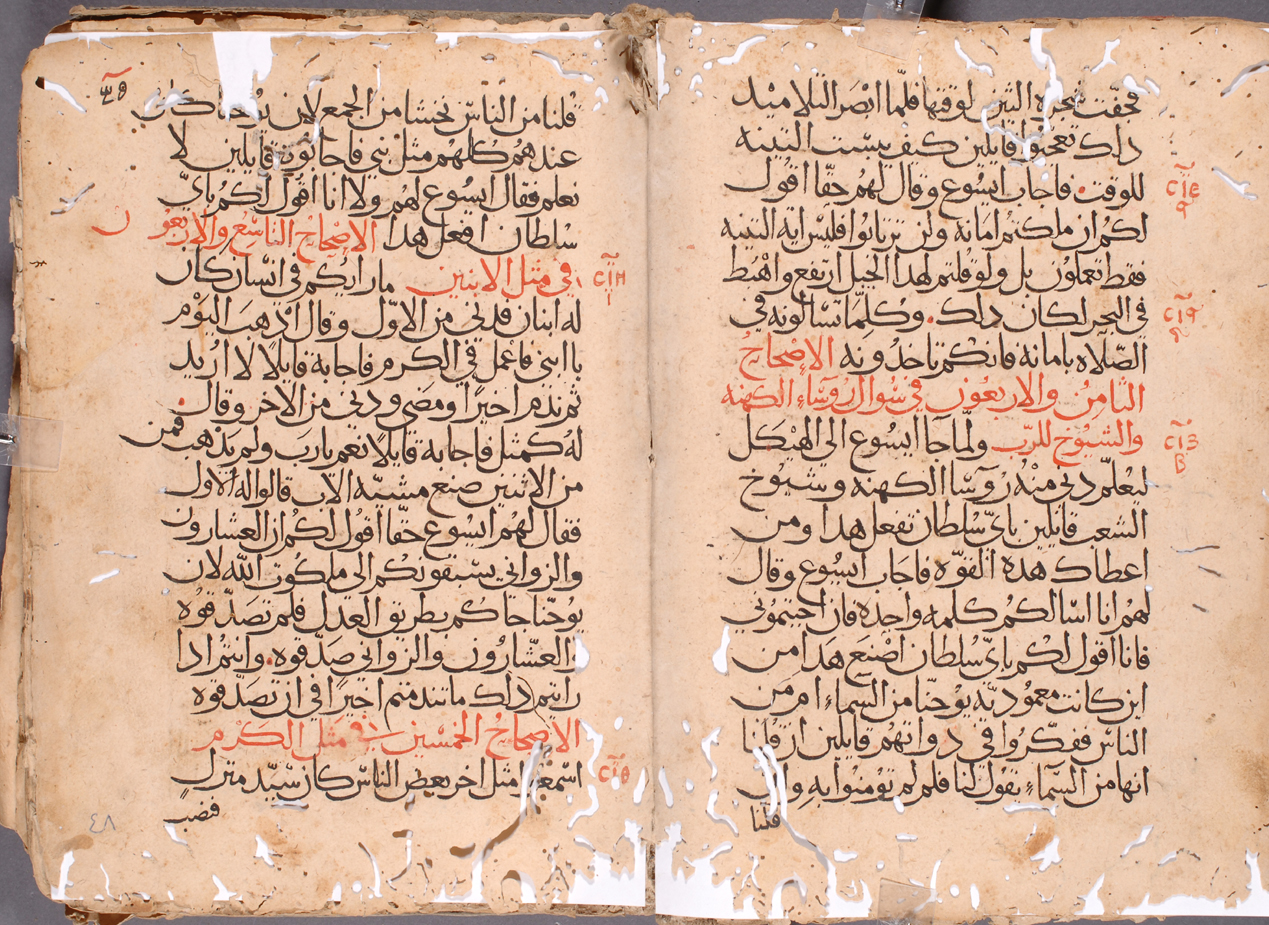 فجفت شجرة التين لوقتها فلما ابصر التلاميد
دلك تعجبوا قايلين كيف يبست التينه
للوقت. فاجاب ايسوع وقال لهم حقا اقول
لكم ان ملكتم امانه ولن ترتابوا فليس ايه التينه
فقط تعملون بل ولو قلتم لهدا الجبل ارتفع واهبط
في البحر لكان دلك. وكلما تسالونه في
الصلاه بامانه فانكم تاخدونه الاصحاح
الثامن والاربعون في سوال روساء الكهنه
والشيوخ للرب ولما جا ايسوع الي الهيكل
ليعلم دني منه روسا الكهنه وشيوخ
الشعب قايلين باي سلطان تفعل هدا ومن
اعطاك هده القوه فاجاب ايسوع وقال
لهم انا اسالكم كلمه واحده فان اجبتموني
فانا اقول لكم باي سلطان اصنع هدا من
اين كانت معموديه يوحنا من السماء ام من
الناس ففكروا في دواتهم قايلين ان قلنا
انها من السماء يقول لنا فلم لم تومنوا به وان
قلنا
قلنا من الناس نخشا من الجمع لان يوحنا كان
عندهم كلهم مثل نبي فاجابوه قايلين لا
نعلم فقال ايسوع لهم ولا انا اقول لكم باي
سلطان افعل هدا الاصحاح التاسع والاربعون
في مثل الابنين ما رايكم في انسان كان
له ابنان فدني من الاول وقال ادهب اليوم
يا ابني فاعمل في الكرم فاجابه قايلا لا اريد
ثم ندم اخيرا ومضي ودني من الاخر وقال
له كمثل فاجابه قايلا نعم يارب ولم يدهب فمن
من الاثنين صنع مشيه الاب قالوا له الاول
فقال لهم ايسوع حقا اقول لكم ان العشارون
والزواني يسبقونكم الى ملكوت الله لان
يوحنا جاكم بطريق العدل فلم تصدقوه
والعشارون والزواني صدقوه. وانتم ادا
رايتم دلك ما تندمتم اخيرا في ان تصدقوه
الاصحاح الخمسين في مثل الكرم
اسمعوا مثل اخر بعض الناس كان سيد منزل
فنصب
٤٨